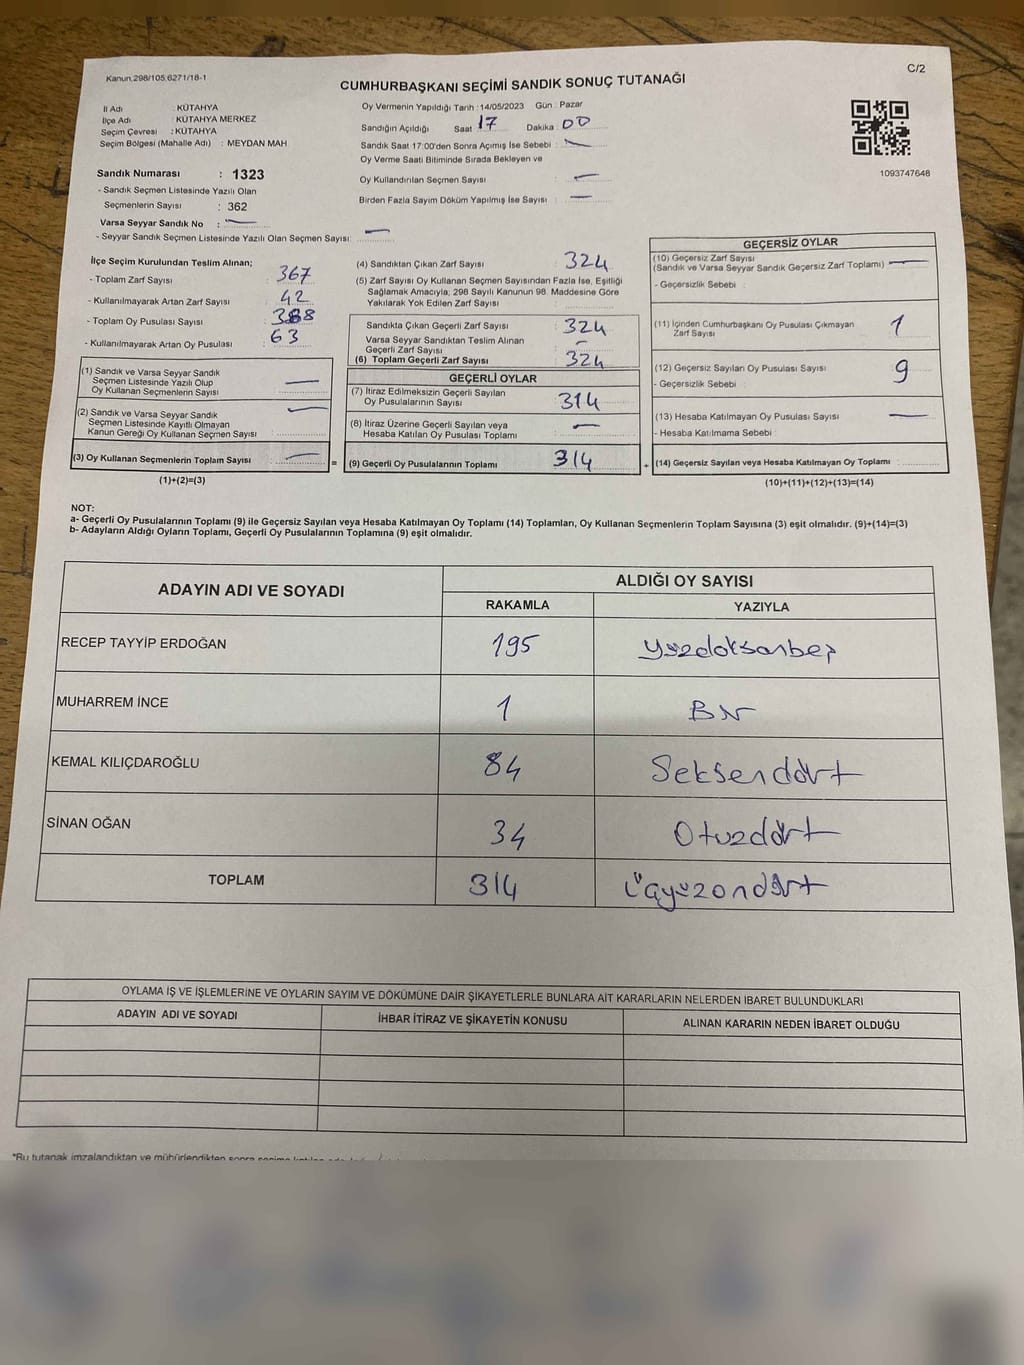 Kanun.298/105.6271/18-1
C/2
CUMHURBAŞKANI SEÇİMİ SANDIK SONUÇ TUTANAĞI
İl Adı : KÜTAHYA
İlçe Adı : KÜTAHYA MERKEZ
Seçim Çevresi : KÜTAHYA
Seçim Bölgesi (Mahalle Adı) : MEYDAN MAH
Sandık Numarası : 1323
- Sandık Seçmen Listesinde Yazılı Olan
Seçmenlerin Sayısı : 362
Varsa Seyyar Sandık No : —
- Seyyar Sandık Seçmen Listesinde Yazılı Olan Seçmen Sayısı : —
Oy Vermenin Yapıldığı Tarih : 14/05/2023 Gün : Pazar
Sandığın Açıldığı Saat : 17 Dakika : 00
Sandık Saat 17:00'den Sonra Açımış İse Sebebi : —
Oy Verme Saati Bitiminde Sırada Bekleyen ve
Oy Kullandırılan Seçmen Sayısı : —
Birden Fazla Sayım Döküm Yapılmış İse Sayısı : —
1093747648
İlçe Seçim Kurulundan Teslim Alınan;
- Toplam Zarf Sayısı : 367
- Kullanılmayarak Artan Zarf Sayısı : 42
- Toplam Oy Pusulası Sayısı :
- Kullanılmayarak Artan Oy Pusulası : 63
(1) Sandık ve Varsa Seyyar Sandık
Seçmen Listesinde Yazılı Olup
Oy Kullanan Seçmenlerin Sayısı : —
(2) Sandık ve Varsa Seyyar Sandık
Seçmen Listesinde Kayıtlı Olmayan
Kanun Gereği Oy Kullanan Seçmen Sayısı : —
(3) Oy Kullanan Seçmenlerin Toplam Sayısı : —
(1)+(2)=(3)
(4) Sandıktan Çıkan Zarf Sayısı : 324
(5) Zarf Sayısı Oy Kullanan Seçmen Sayısından Fazla İse, Eşitliği
Sağlamak Amacıyla; 298 Sayılı Kanunun 98. Maddesine Göre
Yakılarak Yok Edilen Zarf Sayısı :
Sandıkta Çıkan Geçerli Zarf Sayısı : 324
Varsa Seyyar Sandıktan Teslim Alınan
Geçerli Zarf Sayısı : —
(6) Toplam Geçerli Zarf Sayısı : 324
GEÇERLİ OYLAR
(7) İtiraz Edilmeksizin Geçerli Sayılan
Oy Pusulalarının Sayısı : 314
(8) İtiraz Üzerine Geçerli Sayılan veya
Hesaba Katılan Oy Pusulası Toplamı : —
= (9) Geçerli Oy Pusulalarının Toplamı : 314
GEÇERSİZ OYLAR
(10) Geçersiz Zarf Sayısı
(Sandık ve Varsa Seyyar Sandık Geçersiz Zarf Toplamı) : —
- Geçersizlik Sebebi :
(11) İçinden Cumhurbaşkanı Oy Pusulası Çıkmayan
Zarf Sayısı : 1
(12) Geçersiz Sayılan Oy Pusulası Sayısı : 9
- Geçersizlik Sebebi :
(13) Hesaba Katılmayan Oy Pusulası Sayısı : —
- Hesaba Katılmama Sebebi :
+ (14) Geçersiz Sayılan veya Hesaba Katılmayan Oy Toplamı :
(10)+(11)+(12)+(13)=(14)
NOT:
a- Geçerli Oy Pusulalarının Toplamı (9) ile Geçersiz Sayılan veya Hesaba Katılmayan Oy Toplamı (14) Toplamları, Oy Kullanan Seçmenlerin Toplam Sayısına (3) eşit olmalıdır. (9)+(14)=(3)
b- Adayların Aldığı Oyların Toplamı, Geçerli Oy Pusulalarının Toplamına (9) eşit olmalıdır.
ADAYIN ADI VE SOYADI ALDIĞI OY SAYISI
RAKAMLA YAZIYLA
RECEP TAYYİP ERDOĞAN 195 yüzdoksanbeş
MUHARREM İNCE 1 Bir
KEMAL KILIÇDAROĞLU 84 Seksendört
SİNAN OĞAN 34 Otuzdört
TOPLAM 314 Üçyüzondört
OYLAMA İŞ VE İŞLEMLERİNE VE OYLARIN SAYIM VE DÖKÜMÜNE DAİR ŞİKAYETLERLE BUNLARA AİT KARARLARIN NELERDEN İBARET BULUNDUKLARI
ADAYIN ADI VE SOYADI İHBAR İTİRAZ VE ŞİKAYETİN KONUSU ALINAN KARARIN NEDEN İBARET OLDUĞU
*Bu tutanak imzalandıktan ve mühürlendikten sonra